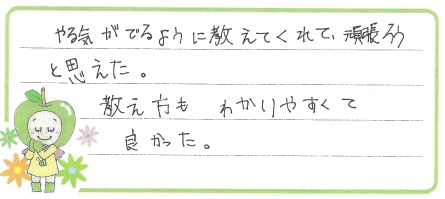 やる気がでるように教えてくれて、頑張ろう
と思えた。
教え方も わかりやすくて
良かった。